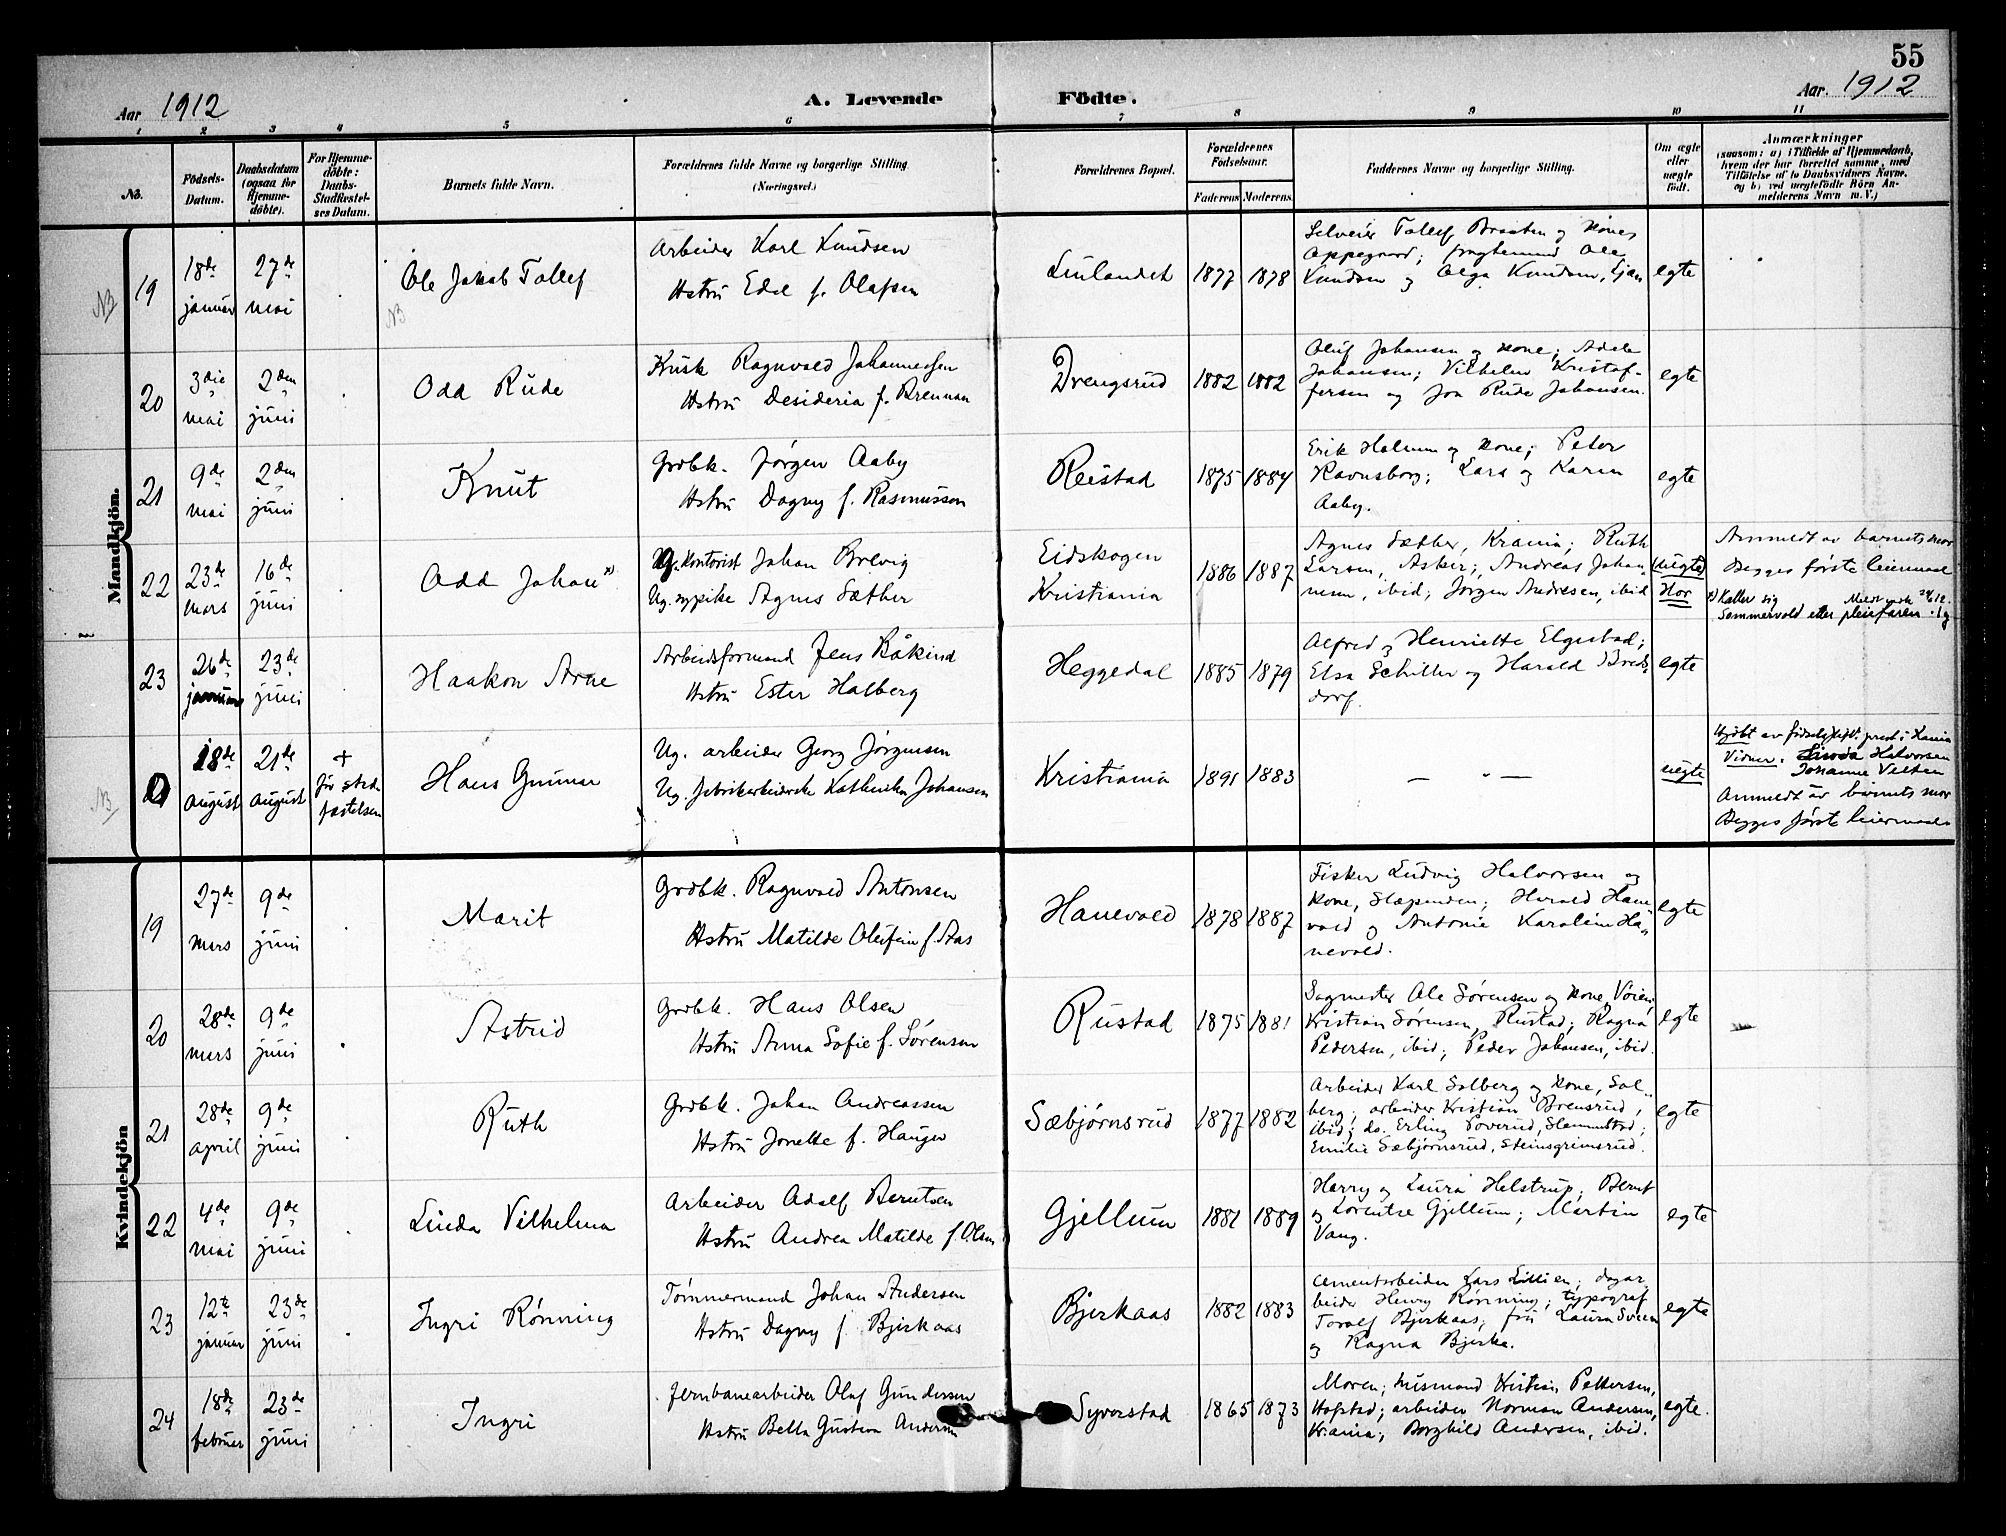 55
Aar 1912
A. Levende Födte.
Aar. 1912
1 2 3 4 5 6 7 8 9 10 11
No.
Födsels-Datum.
Daabsdatum (ogsaa for Hjemme-döbte).
For Hjemme-döbte: Daabs-Stadfæstel-ses Datum.
Barnets fulde Navn.
Forældrenes fulde Navne og borgerlige Stilling. (Næringsvei.)
Forældrenes Bopæl.
Forældrenes Födselsaar.
Faderens Moderens.
Faddernes Navne og borgerlige Stilling.
Om ægte eller uægte födt.
Anmærkninger
(saasom: a) i Tilfælde af Hjemmedaab, hvem der har forrettet samme, med Tilföielse af to Daabsvidners Navne, og b) ved uægtefödte Börn An-melderens Navn m. V.)
Mandkjön.
NB
19
18de januar
27de mai
Ole Jakob Tollef
NB
Arbeider Karl Knudsen
Hstru Edel f. Olafsen
1877 1878
Selveier Tollef Braaten og kone,
Oppegaard; Ole
Knudsen og Olga Knudsen, Ljan
egte
20
3die mai
2den juni
Odd Rude
Kusk Ragnvald Johannessen
Hstru Desideria f. Brennan
Drengsrud
1882 1882
Oluf Johansen og kone; Adele
Johansen; Vilhelm Kristof-
fersen og Joa Rude Johansen.
egte
21
9de mai
2den juni
Knut
Grdbk. Jörgen Aaby
Hstru Dagny f. Rasmussen
Reistad
1875 1884
Erik Halnum og kone; Peter
Ravnsborg; Lars og Karen
Aaby.
egte
22
23de mars
16de juni
Odd Johan x)
Ug. kontorist Johan Brevig
Ug. sypike Agnes Sæther
Eidskogen
Kristiania
1886 1887
Agnes Sæther, Krania; Ruth
Larsen, Asker; Andreas Johan-
nesen, ibid; Jörgen Andresen, ibid
(uegte)
Hor
Anmeldt av barnets mor
Begges förste leiermaal
x) Kaller sig
Sommervold efter pleiefaren
23
26de januar
23de juni
Haakon Arne
Arbeidsformand Jens Råkind
Hstru Ester Halberg
Heggedal
1885 1879
Alfred og Henriette Elgestad;
Elsa Schiller og Harald Breds-
dorf.
egte
NB
18de august
21de august
+
för stad-
fæstelsen
Hans Gunnar
Ug. arbeider Georg Jörgensen
Ug. fabrikarbeiderske Kathinka Johansen
Kristiania
1891 1883
— " —
uegte
Hjdöbt av födselsstift. prest i Krania
Vidner. Halvorsen
Johanne Velten
Anmeldt av barnets mor
Begges förste leiermaal
Kvindekjön
19
27de mars
9de juni
Marit
Grdbk. Ragnvald Antonsen
Hstru Matilde Olufine f. Aas
Hanevold
1878 1887
Fisker Ludvig Halvorsen og
kone, Slæpenden; Harald Hane-
vold og Antonie Karoline Ha-
nevold.
egte
20
28de mars
9de juni
Astrid
Grdbk. Hans Olsen
Hstru Anna Sofie f. Sörensen
Rustad
1875 1881
Sagmester Ole Sörensen og kone, Vöien;
Kristian Sörensen, Rustad; Ragna
Pedersen, ibid; Peder Johansen, ibid.
egte
21
28de april
9de juni
Ruth
Grdbk. Johan Andreassen
Hstru Jonette f. Haugen
Sæbjörnsrud
1877 1882
Arbeider Karl Solberg og kone, Sol-
berg; arbeider Kristian Brensrud,
ibid; do. Erling Poverud, Slemmestad;
Emilie Sæbjörnsrud, Steinsgrimsrud.
egte
22
4de mai
9de juni
Linda Vilhelma
Arbeider Adolf Berntsen
Hstru Andrea Matilde f. Olsen
Gjellum
1881 1889
Harry og Laura Helstrup; Bernt
og Lorentze Gjellum; Martin
Vang.
egte
23
12te januar
23de juni
Ingri Rönning
Tömmermand Johan Andersen
Hstru Dagny f. Bjerkaas
Bjerkaas
1882 1883
Cementarbeider Lars Lillien; dagar-
beider Henry Rönning; typograf
Toralf Bjerkaas; fru Laura
og Ragna Bjerke.
egte
24
18de februar
23de juni
Ingri
Jernbanearbeider Olaf Gundersen
Hstru Bella Gustava Andersen
Syverstad
1865 1873
Moren; husmand Kristian Pettersen,
Hofstad; arbeider Norman Andersen,
Krania; Borghild Andersen, ibid.
egte.